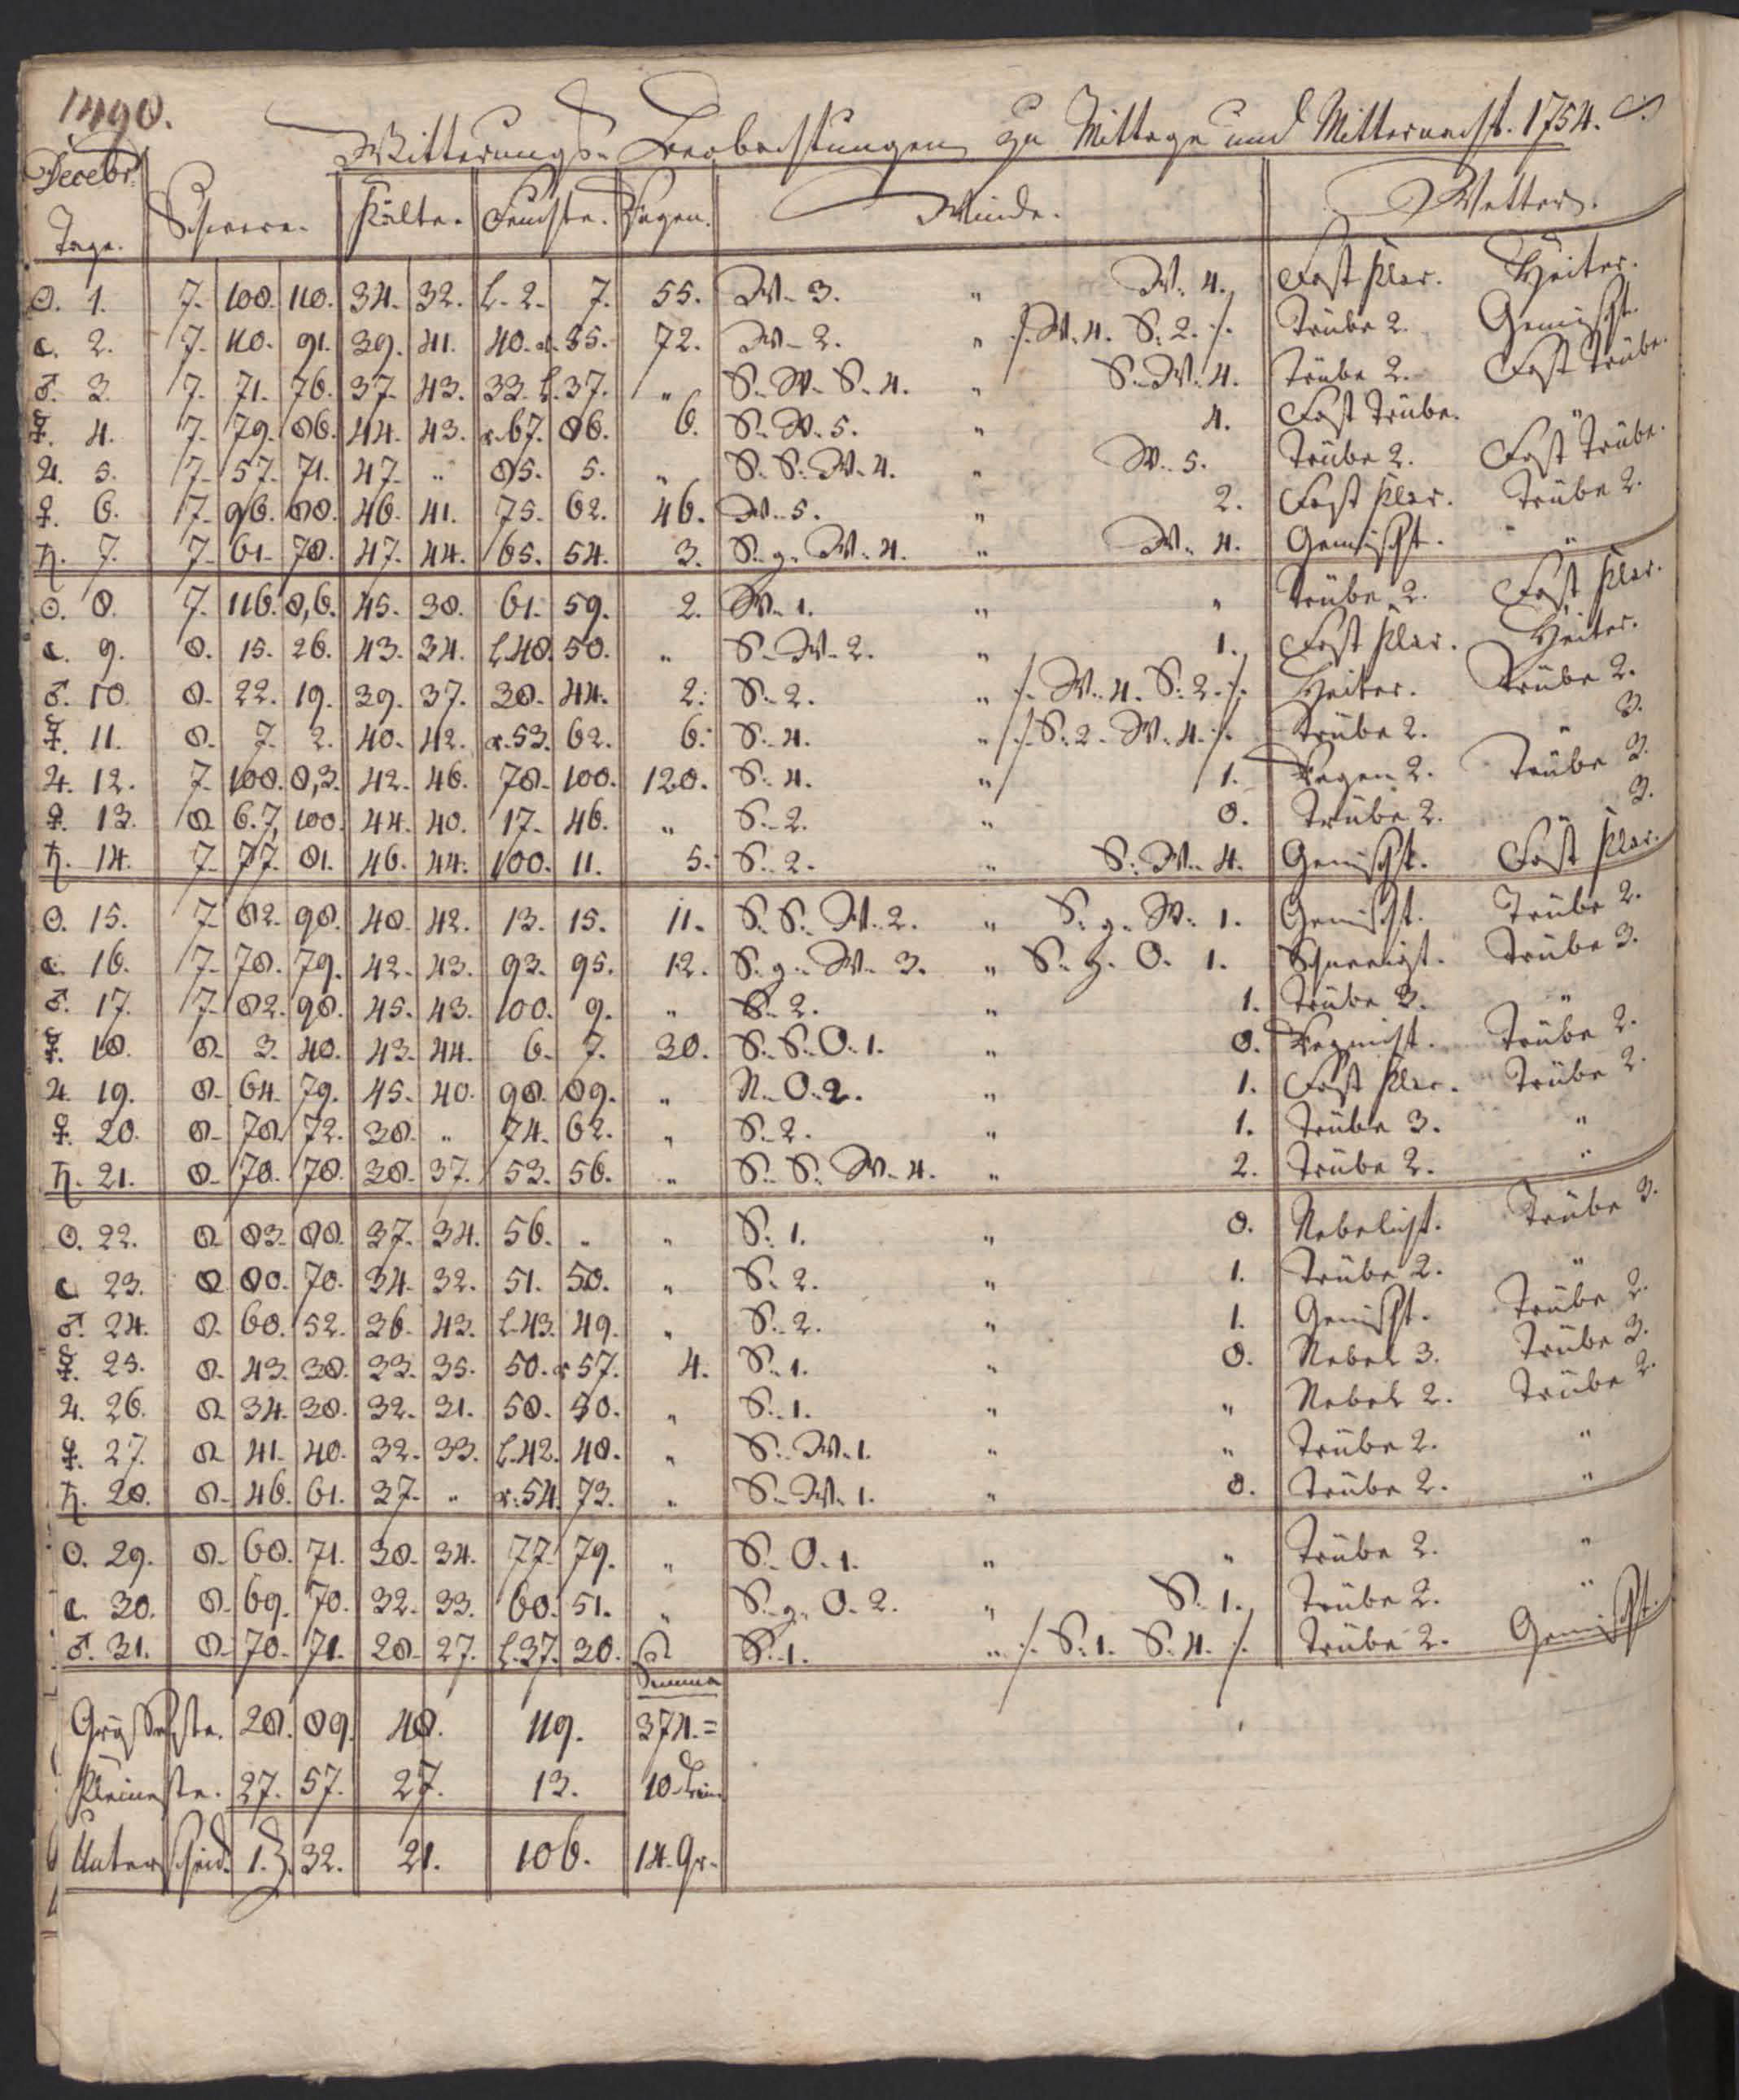 1490.
Witterungs- Beobachtungen zu Mittage und Mitternacht. 1754.
Decebr.
Tage. Schwere. Kälte. Feuchte. Regen. Winde. Wetter.
☉. 1. 7. 108. 110. 34. 32. L. 2. 7. 55. W. 3. " W. 4. Fast klar. Heiter.
☾. 2. 7. 110. 91. 39. 41. 40. r. 55. 72. W. 2. " /. W. 4. S. 2. /. Trübe 2. Gemischt.
♂. 3. 7. 71. 76. 37. 43. 33. L. 37. " S. W. S. 4. " S. W. 4. Trübe 2. Fast Trübe.
☿. 4. 7. 79. 86. 44. 43. r. 67. 86. 6. S. W. 5. " 4. Fast Trübe. "
♃. 5. 7. 57. 71. 47. " 85. 5. " S. S. W. 4. " W. 5. Trübe 2. Fast Trübe.
♀. 6. 7. 96. 88. 46. 41. 75. 62. 46. W. 5. " 2. Fast klar. Trübe 2.
♄. 7. 7. 61. 78. 47. 44. 65. 54. 3. S. g. W. 4. " W. 4. Gemischt. "
☉. 8. 7. 116. 8,6. 45. 38. 61. 59. 2. W. 1. " " Trübe 2. Fast klar.
☾. 9. 8. 15. 26. 43. 34. L. 48. 50. " S. W. 2. " 1. Fast klar. Heiter.
♂. 10. 8. 22. 19. 39. 37. 38. 44. 2. S. 2. " /. W. 4. S. 2. /. Heiter. Trübe 2.
☿. 11. 8. 7. 2. 40. 42. r. 53. 62. 6. S. 4. " /. S. 2. W. 4. /. Trübe 2. " 3.
♃. 12. 7. 108. 8,3. 42. 46. 78. 100. 120. S. 4. " 1. Regen 2. Trübe 3.
♀. 13. 8. 6. 7, 100. 44. 40. 17. 46. " S. 2. " 0. Trübe 2. " 3.
♄. 14. 7. 77. 81. 46. 44. 100. 11. 5. S. 2. " S. W. 4. Gemischt. Fast klar.
☉. 15. 7. 82. 98. 48. 42. 13. 15. 11. S. S. W. 2. " S. g. W. 1. Gemischt. Trübe 2.
☾. 16. 7. 78. 79. 42. 43. 93. 95. 12. S. g. W. 3. " S. g. O. 1. Schneeigt. Trübe 3.
♂. 17. 7. 82. 98. 45. 43. 100. 9. " S. 2. " 1. Trübe 3. "
☿. 18. 8. 3. 40. 43. 44. 6. 7. 30. S. S. O. 1. " 0. Regnicht. Trübe 2.
♃. 19. 8. 64. 79. 45. 40. 98. 89. " N. O. 2. " 1. Fast klar. Trübe 2.
♀. 20. 8. 78. 72. 38. " 74. 62. " S. 2. " 1. Trübe 3. "
♄. 21. 8. 70. 78. 38. 37. 53. 56. " S. S. W. 4. " 2. Trübe 2. "
☉. 22. 8. 83. 88. 37. 34. 56. " " S. 1. " 0. Nebelicht. Trübe 3.
☾. 23. 8. 80. 70. 34. 32. 51. 50. " S. 2. " 1. Trübe 2. "
♂. 24. 8. 60. 52. 36. 43. L. 43. 49. " S. 2. " 1. Gemischt. Trübe 2.
☿. 25. 8. 43. 38. 33. 35. 50. r. 57. 4. S. 1. " 0. Nebel 3. Trübe 3.
♃. 26. 8. 34. 38. 32. 31. 58. 50. " S. 1. " " Nebel 2. Trübe 2.
♀. 27. 8. 41. 40. 32. 33. L. 42. 48. " S. W. 1. " " Trübe 2. "
♄. 28. 8. 46. 61. 37. " r. 54. 73. " S. W. 1. " 0. Trübe 2. "
☉. 29. 8. 68. 71. 38. 34. 77. 79. " S. O. 1. " " Trübe 2. "
☾. 30. 8. 69. 70. 32. 33. 60. 51. " S. g. O. 2. " S. 1. Trübe 2. "
♂. 31. 8. 70. 71. 28. 27. L. 37. 30. S. 1. " /. S. 1. S. 4. /. Trübe 2. Gemischt.
Summa
Grösseste. 28. 89. 48. 119. 374. =
Kleineste. 27. 57. 27. 13. 10
Unterscheid. 1. 32. 21. 106. 14. Gr.